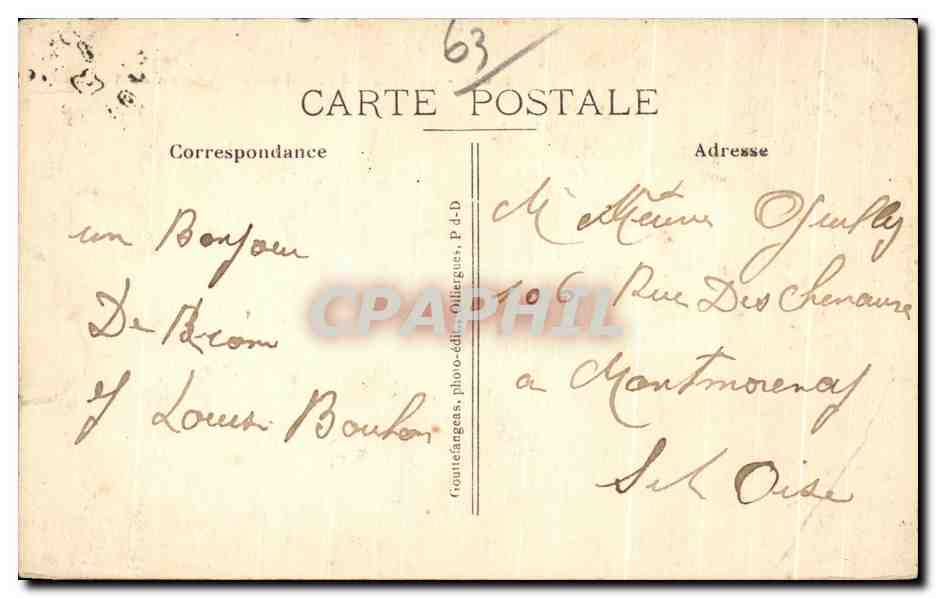 63
CARTE POSTALE
Correspondance
Adresse
un Bonjour
De Riom
Louise Bouhon
Gouttefangeas, photo-édit., Olliergues, P d-D
M
106 Rue Des Chenaux
a Montmorency
S et Oise
CPAPHIL